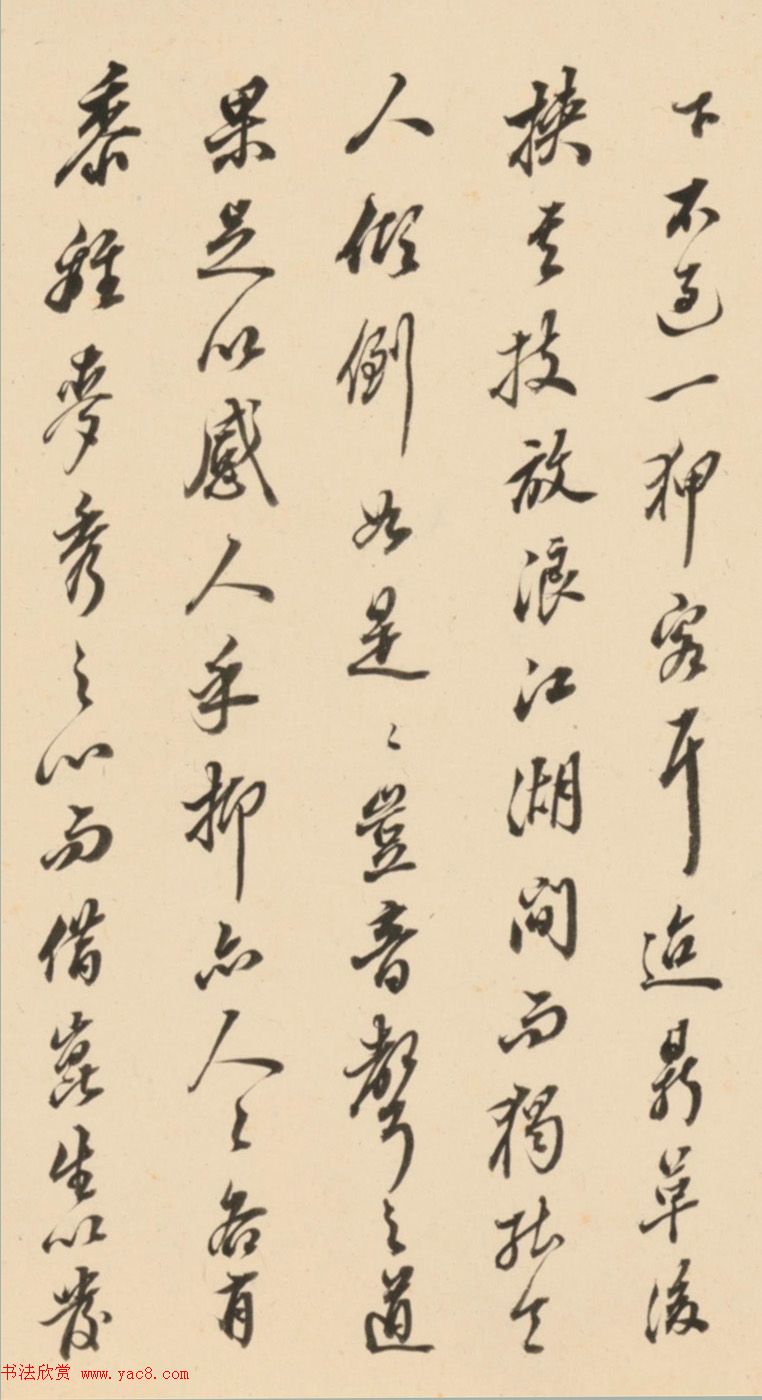 下不過一狎客耳迨鼎革後
挾其技放浪江湖間而獨能令
人傾倒如是是豈音聲之道
果足以感人乎抑亦人人各有
黍離麥秀之心而借崑生以發
书法欣赏 www.yac8.com